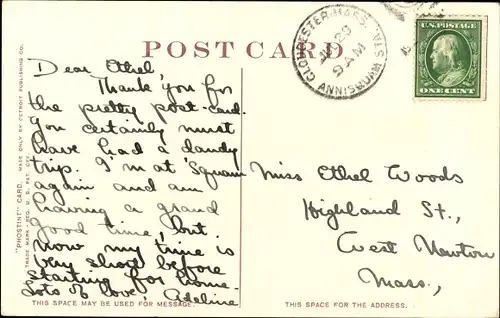 POST CARD
GLOUCESTER, MASS.
9 AM
ANNISQUAM STA.
ONE CENT
"PHOSTINT" CARD. MADE ONLY BY DETROIT PUBLISHING CO.
Dear Ethel,
Thank you for
the pretty post-card.
You certainly must
have had a dandy
trip. I'm at 'Squam
again and am
having a grand
good time, but
now my time is
very short before
starting for home.
Lots of love, Adeline
Miss Ethel Woods
Highland St.,
West Newton
Mass.,
THIS SPACE MAY BE USED FOR MESSAGE.
THIS SPACE IS FOR THE ADDRESS.